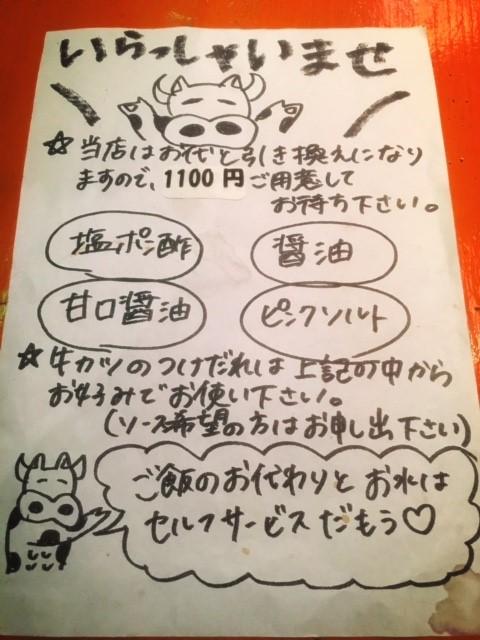 いらっしゃいませ
☆当店はお代と引き換えになり
ますので、1100円ご用意して
お待ち下さい。
塩ポン酢
醤油
甘口醤油
ピンクソルト
☆牛カツのつけだれは上記の中から
お好みでお使い下さい。
(ソース希望の方はお申し出下さい)
ご飯のお代わりとお水は
セルフサービスだもう♡